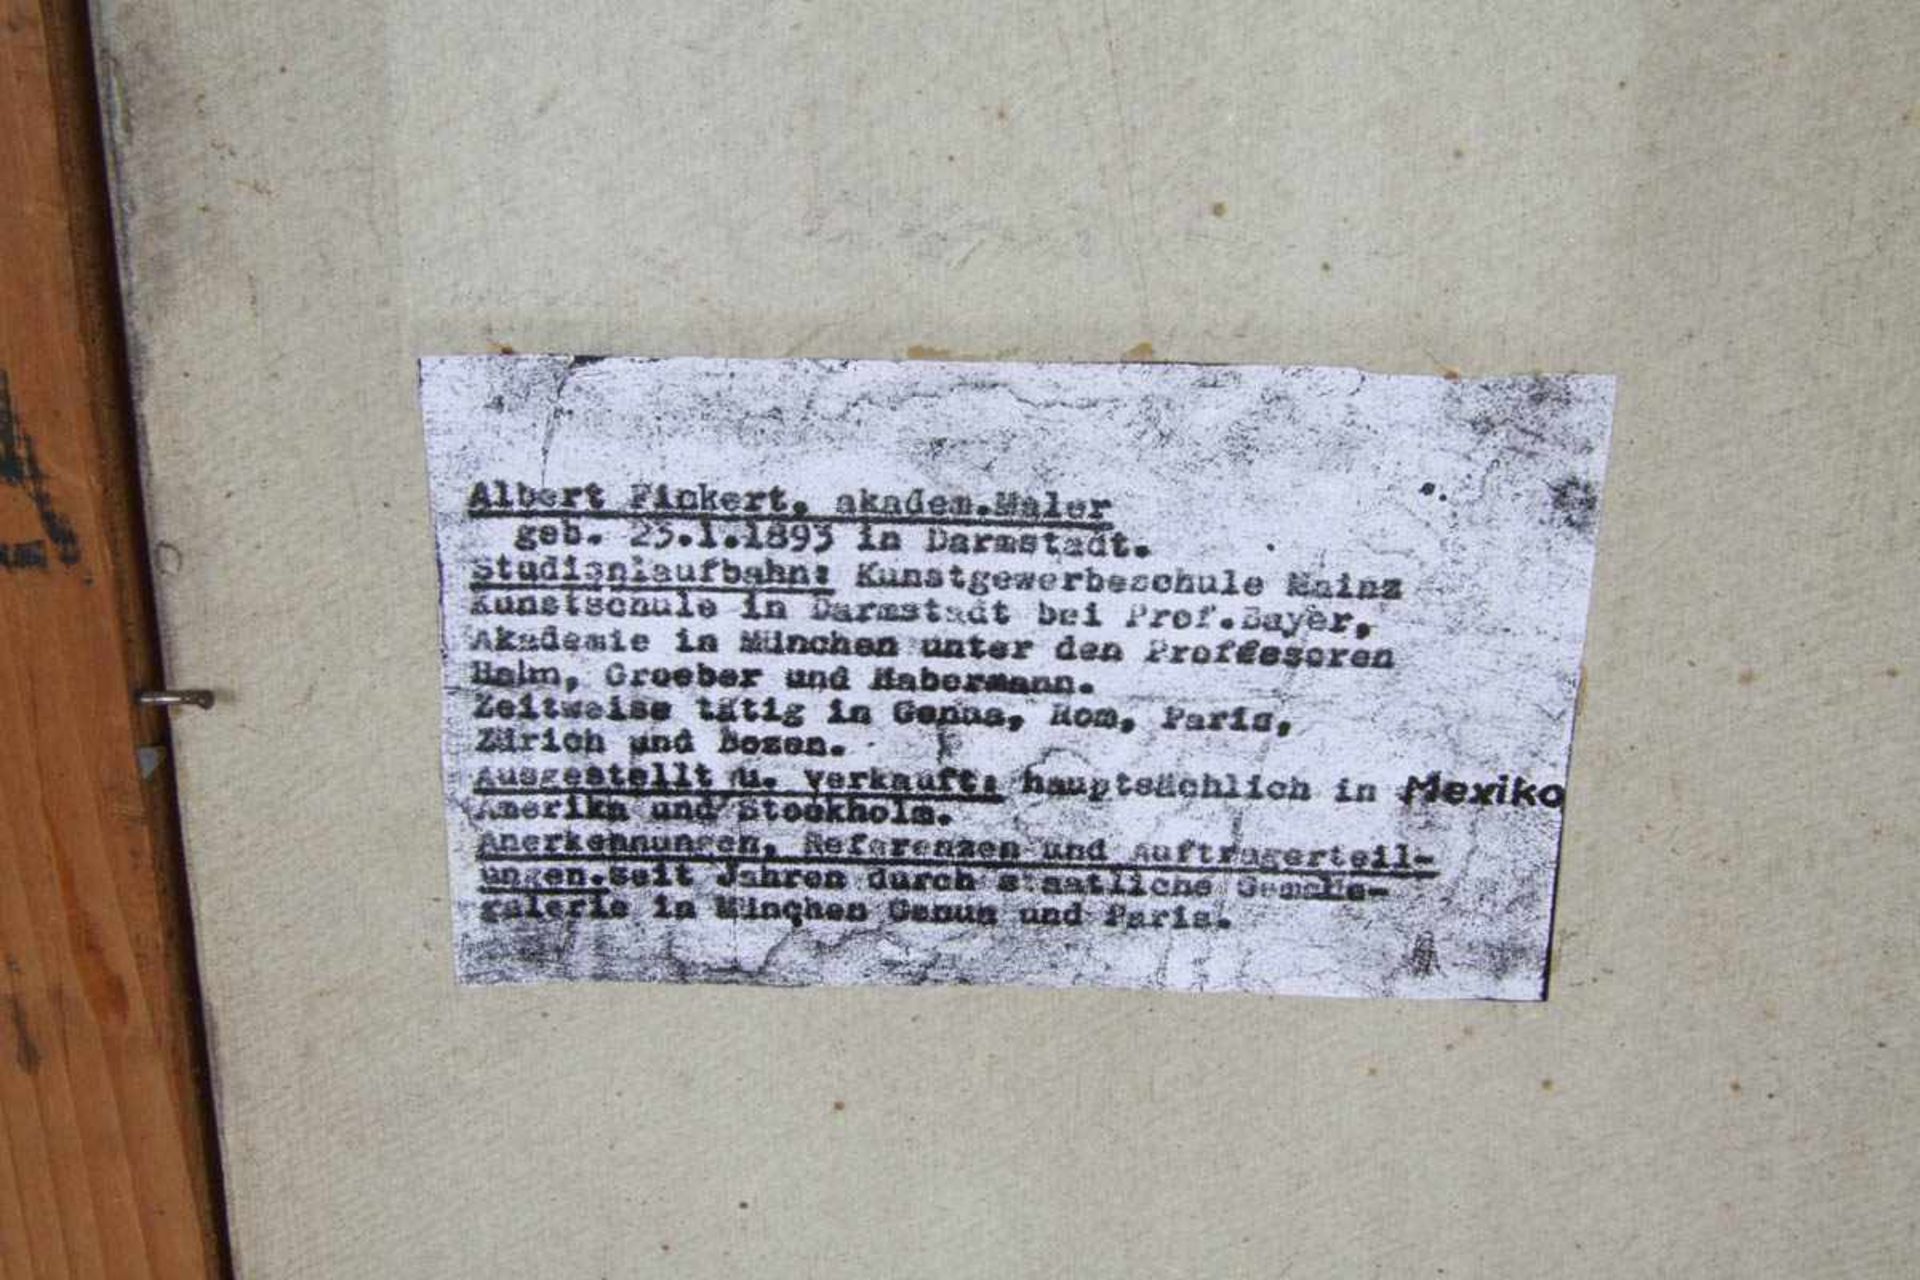 Albert Finkert, akadem.Maler
geb. 23.1.1893 in Darmstadt.
Studienlaufbahn: Kunstgewerbeschule Mainz
Kunstschule in Darmstadt bei Prof.Bayer,
Akademie in München unter den Professoren
Halm, Groeber und Habermann.
Zeitweise tätig in Genua, Rom, Paris,
Zürich und Bozen.
Ausgestellt u. verkauft: hauptsächlich in Mexiko
Amerika und Stockholm.
Anerkennungen, Referenzen und Auftragerteil-
ungen.seit Jahren durch staatliche Gemälde-
galerie in München Genua und Paris.